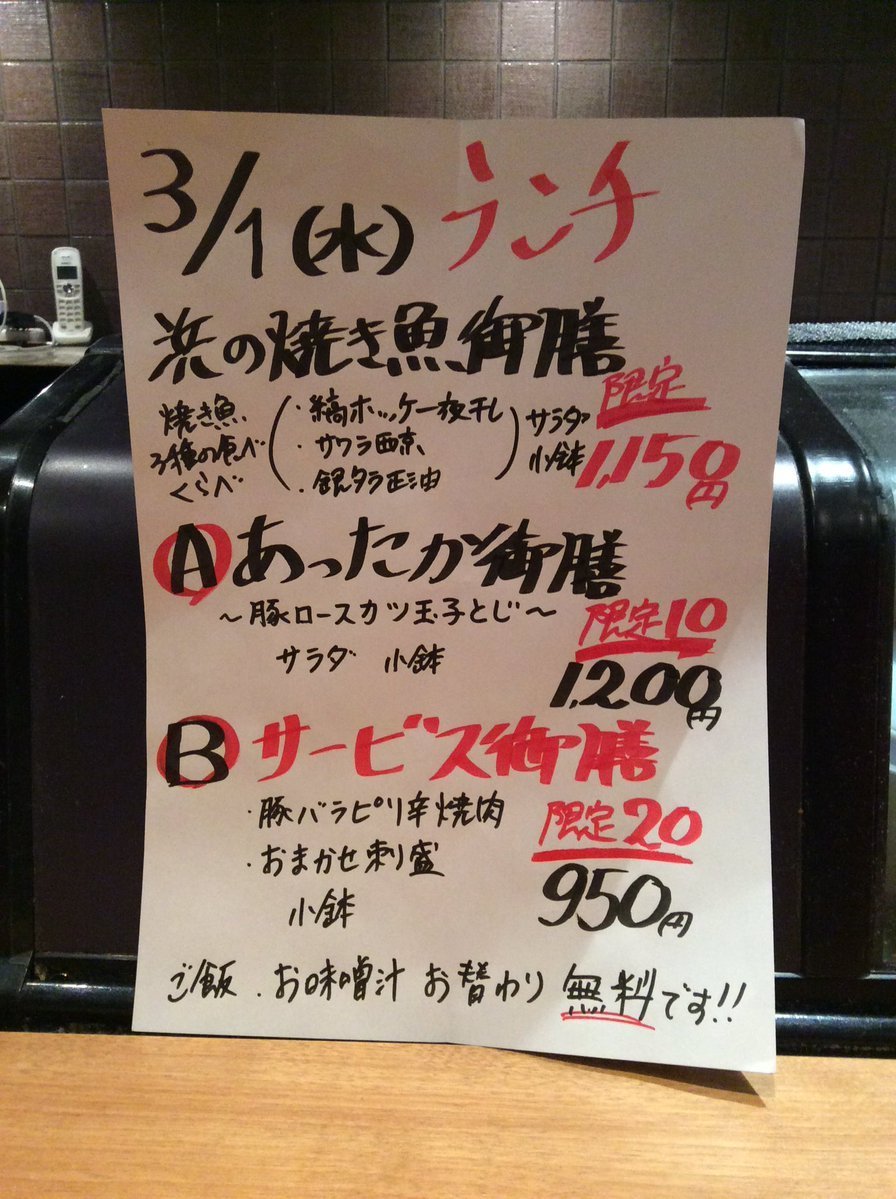 3/1(水) ランチ
浜の焼き魚御膳
限定
1,150円
焼き魚
3種の食べ
くらべ
・縞ホッケ一夜干し
・サワラ西京
・銀タラ正油
サラダ
小鉢
A あったか御膳
～豚ロースカツ玉子とじ～
限定10
サラダ 小鉢
1,200円
B サービス御膳
・豚バラピリ辛焼肉
限定20
・おまかせ刺し盛
950円
小鉢
ご飯・お味噌汁 お替わり 無料です!!